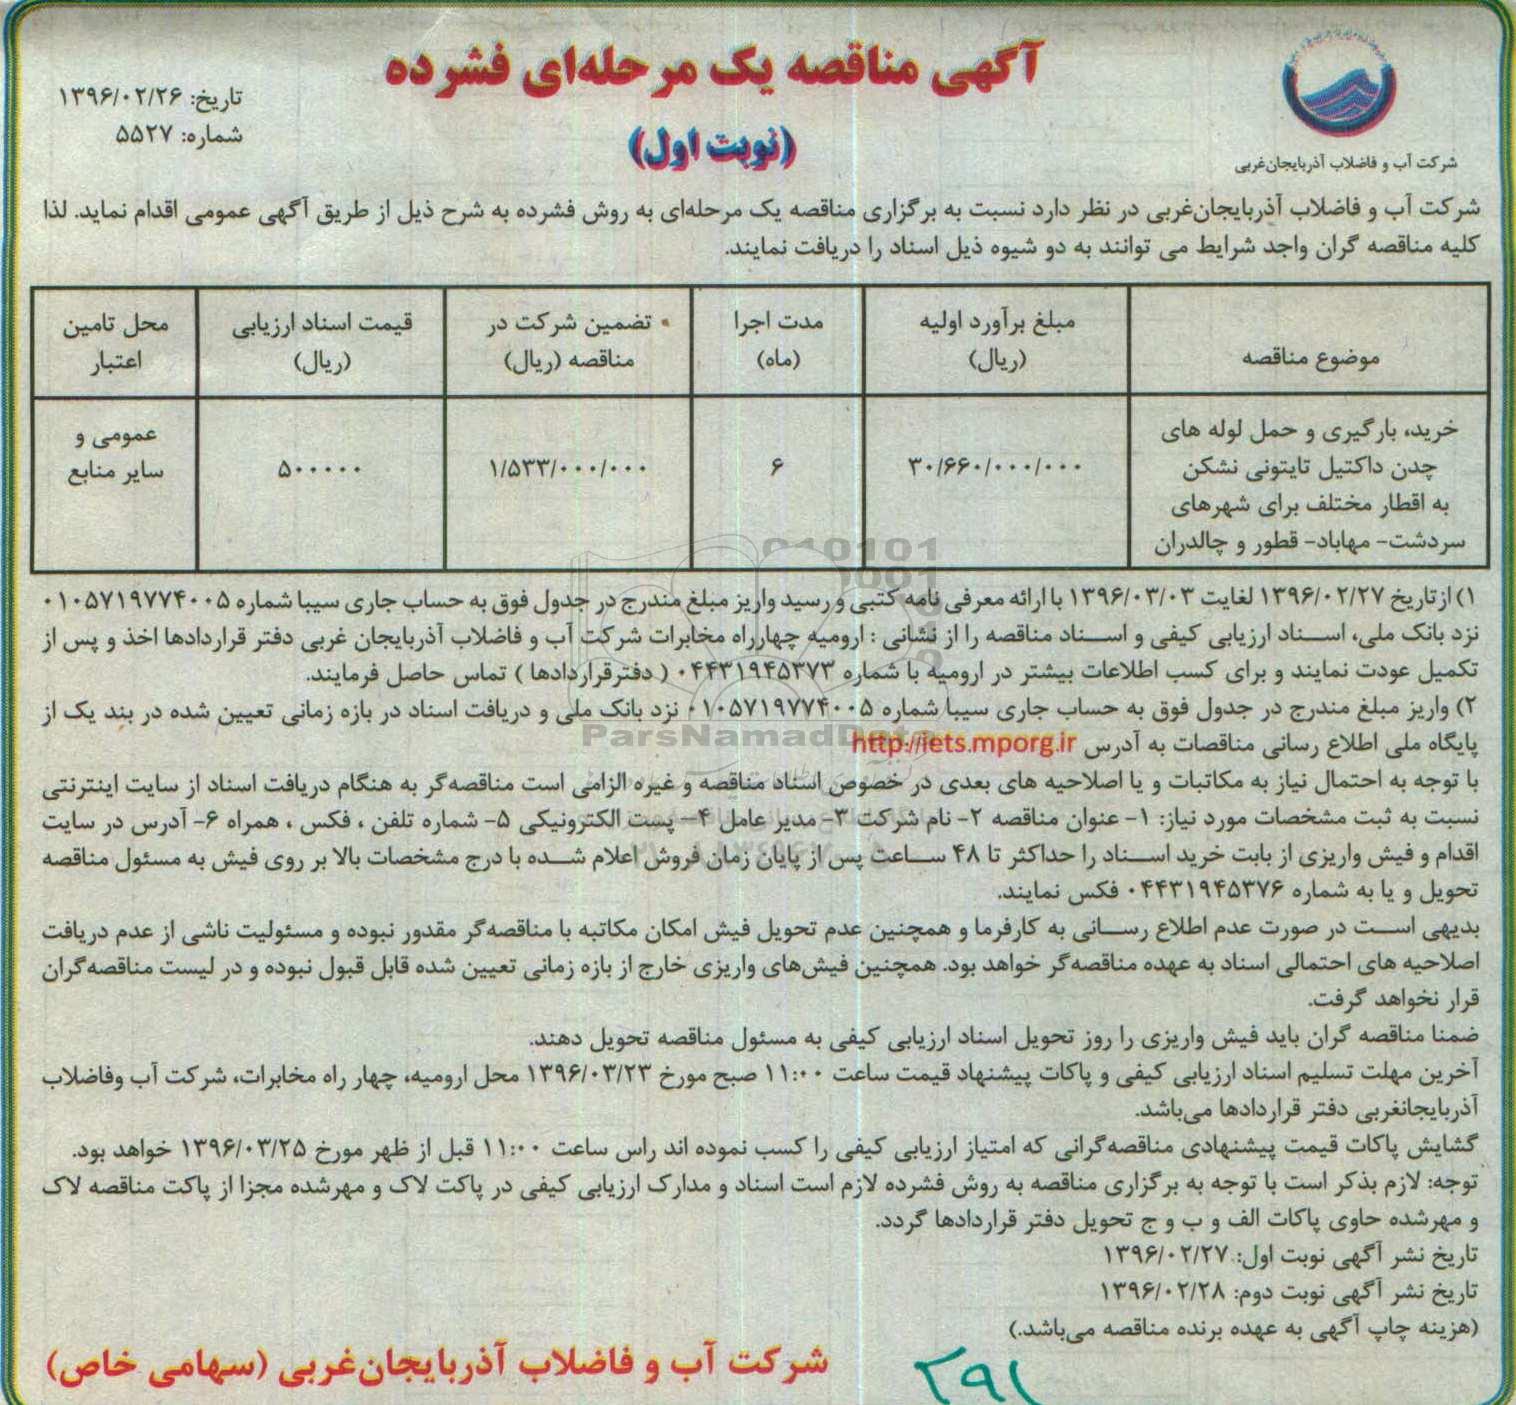 آگهی مناقصه یک مرحله‌ای فشرده
(نوبت اول)
تاریخ: ۱۳۹۶/۰۲/۲۶
شماره: ۵۵۲۷
شرکت آب و فاضلاب آذربایجان‌غربی
شرکت آب و فاضلاب آذربایجان‌غربی در نظر دارد نسبت به برگزاری مناقصه یک مرحله‌ای به روش فشرده به شرح ذیل از طریق آگهی عمومی اقدام نماید. لذا
کلیه مناقصه گران واجد شرایط می توانند به دو شیوه ذیل اسناد را دریافت نمایند.
موضوع مناقصه
مبلغ برآورد اولیه
(ریال)
مدت اجرا
(ماه)
تضمین شرکت در
مناقصه (ریال)
قیمت اسناد ارزیابی
(ریال)
محل تامین
اعتبار
خرید، بارگیری و حمل لوله های
چدن داکتیل تایتونی نشکن
به اقطار مختلف برای شهرهای
سردشت- مهاباد- قطور و چالدران
۳۰/۶۶۰/۰۰۰/۰۰۰
۶
۱/۵۳۳/۰۰۰/۰۰۰
۵۰۰۰۰۰
عمومی و
سایر منابع
۱) ازتاریخ ۱۳۹۶/۰۲/۲۷ لغایت ۱۳۹۶/۰۳/۰۳ با ارائه معرفی نامه کتبی و رسید واریز مبلغ مندرج در جدول فوق به حساب جاری سیبا شماره ۰۱۰۵۷۱۹۷۷۴۰۰۵
نزد بانک ملی، اسناد ارزیابی کیفی و اسناد مناقصه را از نشانی : ارومیه چهارراه مخابرات شرکت آب و فاضلاب آذربایجان غربی دفتر قراردادها اخذ و پس از
تکمیل عودت نمایند و برای کسب اطلاعات بیشتر در ارومیه با شماره ۰۴۴۳۱۹۴۵۳۷۳ ( دفترقراردادها ) تماس حاصل فرمایند.
۲) واریز مبلغ مندرج در جدول فوق به حساب جاری سیبا شماره ۰۱۰۵۷۱۹۷۷۴۰۰۵ نزد بانک ملی و دریافت اسناد در بازه زمانی تعیین شده در بند یک از
پایگاه ملی اطلاع رسانی مناقصات به آدرس http://iets.mporg.ir
با توجه به احتمال نیاز به مکاتبات و یا اصلاحیه های بعدی در خصوص اسناد مناقصه و غیره الزامی است مناقصه‌گر به هنگام دریافت اسناد از سایت اینترنتی
نسبت به ثبت مشخصات مورد نیاز: ۱- عنوان مناقصه ۲- نام شرکت ۳- مدیر عامل ۴- پست الکترونیکی ۵- شماره تلفن ، فکس ، همراه ۶- آدرس در سایت
اقدام و فیش واریزی از بابت خرید اسناد را حداکثر تا ۴۸ ساعت پس از پایان زمان فروش اعلام شده با درج مشخصات بالا بر روی فیش به مسئول مناقصه
تحویل و یا به شماره ۰۴۴۳۱۹۴۵۳۷۶ فکس نمایند.
بدیهی است در صورت عدم اطلاع رسانی به کارفرما و همچنین عدم تحویل فیش امکان مکاتبه با مناقصه‌گر مقدور نبوده و مسئولیت ناشی از عدم دریافت
اصلاحیه های احتمالی اسناد به عهده مناقصه‌گر خواهد بود. همچنین فیش‌های واریزی خارج از بازه زمانی تعیین شده قابل قبول نبوده و در لیست مناقصه‌گران
قرار نخواهد گرفت.
ضمنا مناقصه گران باید فیش واریزی را روز تحویل اسناد ارزیابی کیفی به مسئول مناقصه تحویل دهند.
آخرین مهلت تسلیم اسناد ارزیابی کیفی و پاکات پیشنهاد قیمت ساعت ۱۱:۰۰ صبح مورخ ۱۳۹۶/۰۳/۲۳ محل ارومیه، چهار راه مخابرات، شرکت آب وفاضلاب
آذربایجانغربی دفتر قراردادها می‌باشد.
گشایش پاکات قیمت پیشنهادی مناقصه‌گرانی که امتیاز ارزیابی کیفی را کسب نموده اند راس ساعت ۱۱:۰۰ قبل از ظهر مورخ ۱۳۹۶/۰۳/۲۵ خواهد بود.
توجه: لازم بذکر است با توجه به برگزاری مناقصه به روش فشرده لازم است اسناد و مدارک ارزیابی کیفی در پاکت لاک و مهرشده مجزا از پاکت مناقصه لاک
و مهرشده حاوی پاکات الف و ب و ج تحویل دفتر قراردادها گردد.
تاریخ نشر آگهی نوبت اول: ۱۳۹۶/۰۲/۲۷
تاریخ نشر آگهی نوبت دوم: ۱۳۹۶/۰۲/۲۸
(هزینه چاپ آگهی به عهده برنده مناقصه می‌باشد.)
شرکت آب و فاضلاب آذربایجان‌غربی (سهامی خاص)
۲۹۱
ParsNamadData